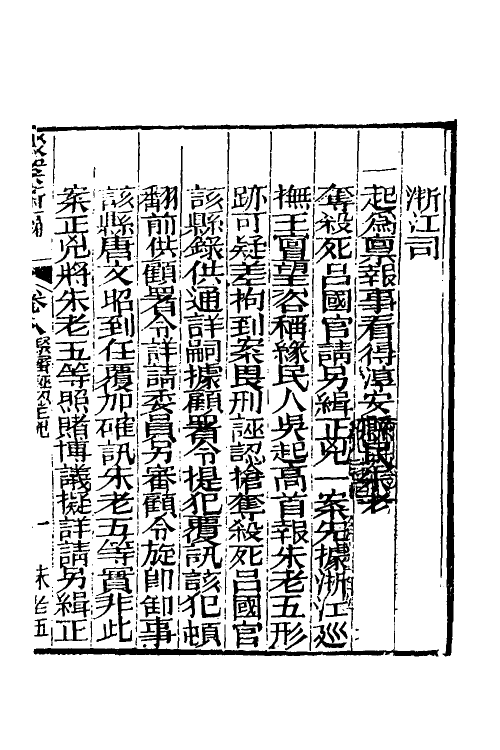 浙江司
一起爲稟報事看得淳安縣民朱老
奪殺死呂國官請另緝正兇一案先據浙江廵
撫王亶望咨稱緣民人吳起高首報朱老五形
跡可疑差拘到案畏刑誣認搶奪殺死呂國官
該縣錄供通詳嗣據顧署令提犯覆訊該犯頓
翻前供顧署令詳請委員另審顧令旋卽卸事
該縣唐文昭到任覆加確訊朱老五等實非此
案正兇將朱老五等照賭博議擬詳請另緝正
駁案新編 卷八 緊審誣認正兇 一 朱老五